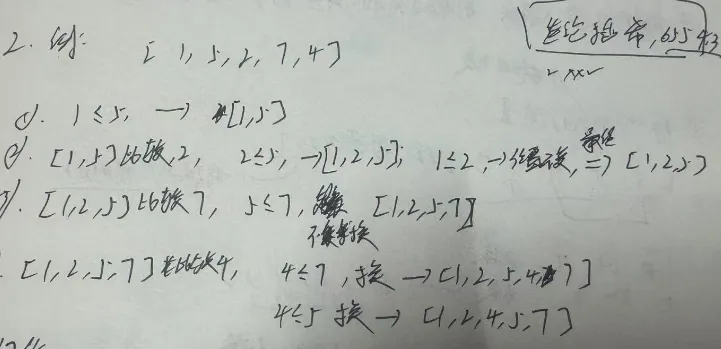 2. 例: [1, 5, 2, 7, 4]
1). 1≤5, → [1,5]
2). [1,5]比较2, 2≤5, →[1,2,5]; 1≤2, →位置不换, 最终 => [1,2,5]
3). [1,2,5]比较7, 5≤7, [1,2,5,7]
[1,2,5,7]比较4, 4≤7, 换 → [1,2,5,4,7]
4≤5 换 → [1,2,4,5,7]